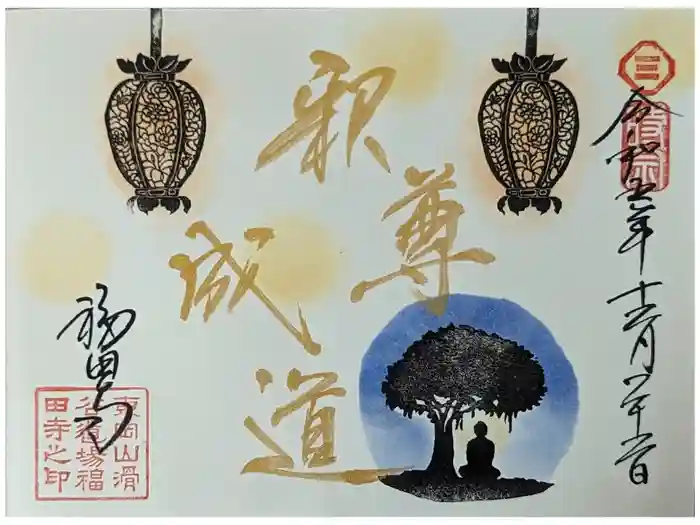 三
時宗
令和五年十二月
釈尊
成道
福田寺
東岡山滑
谷道場福
田寺之印